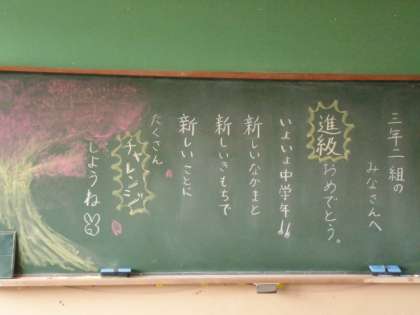 三年二組の
みなさんへ
進級おめでとう。
いよいよ中学年!!
新しいなかまと
新しいきもちで
新しいことに
たくさん
チャレンジ
しようね